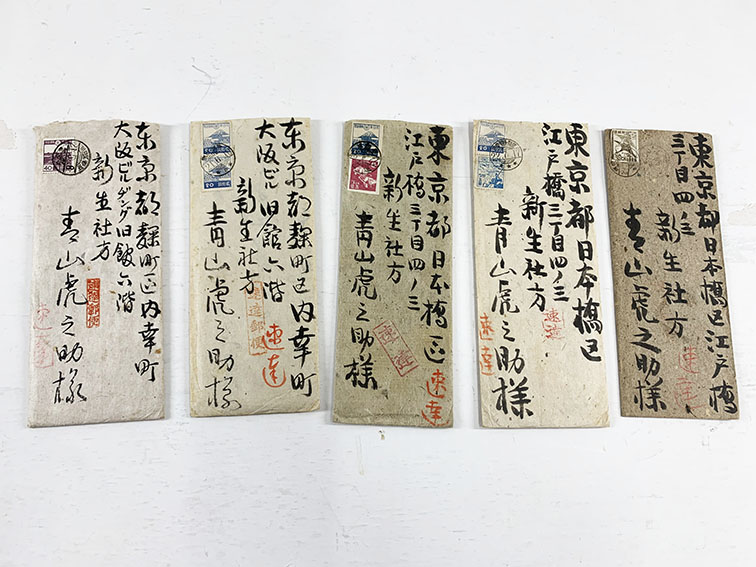 东京都麹町区内幸町
大阪ビルヂング旧館六階
新生社方
青山虎之助様
速達
40
东京都麹町区内幸町
大阪ビル旧館六階
新生社方
青山虎之助様
速達郵便
速達
20
20
東京都日本橋区
江戸橋三丁目四ノ三
新生社方
青山虎之助様
速達
速達
20
東京都日本橋区
江戸橋三丁目四ノ三
新生社方
青山虎之助様
速達
速達
20
東京都日本橋区江戸橋
三丁目四ノ三
新生社方
青山虎之助様
速達